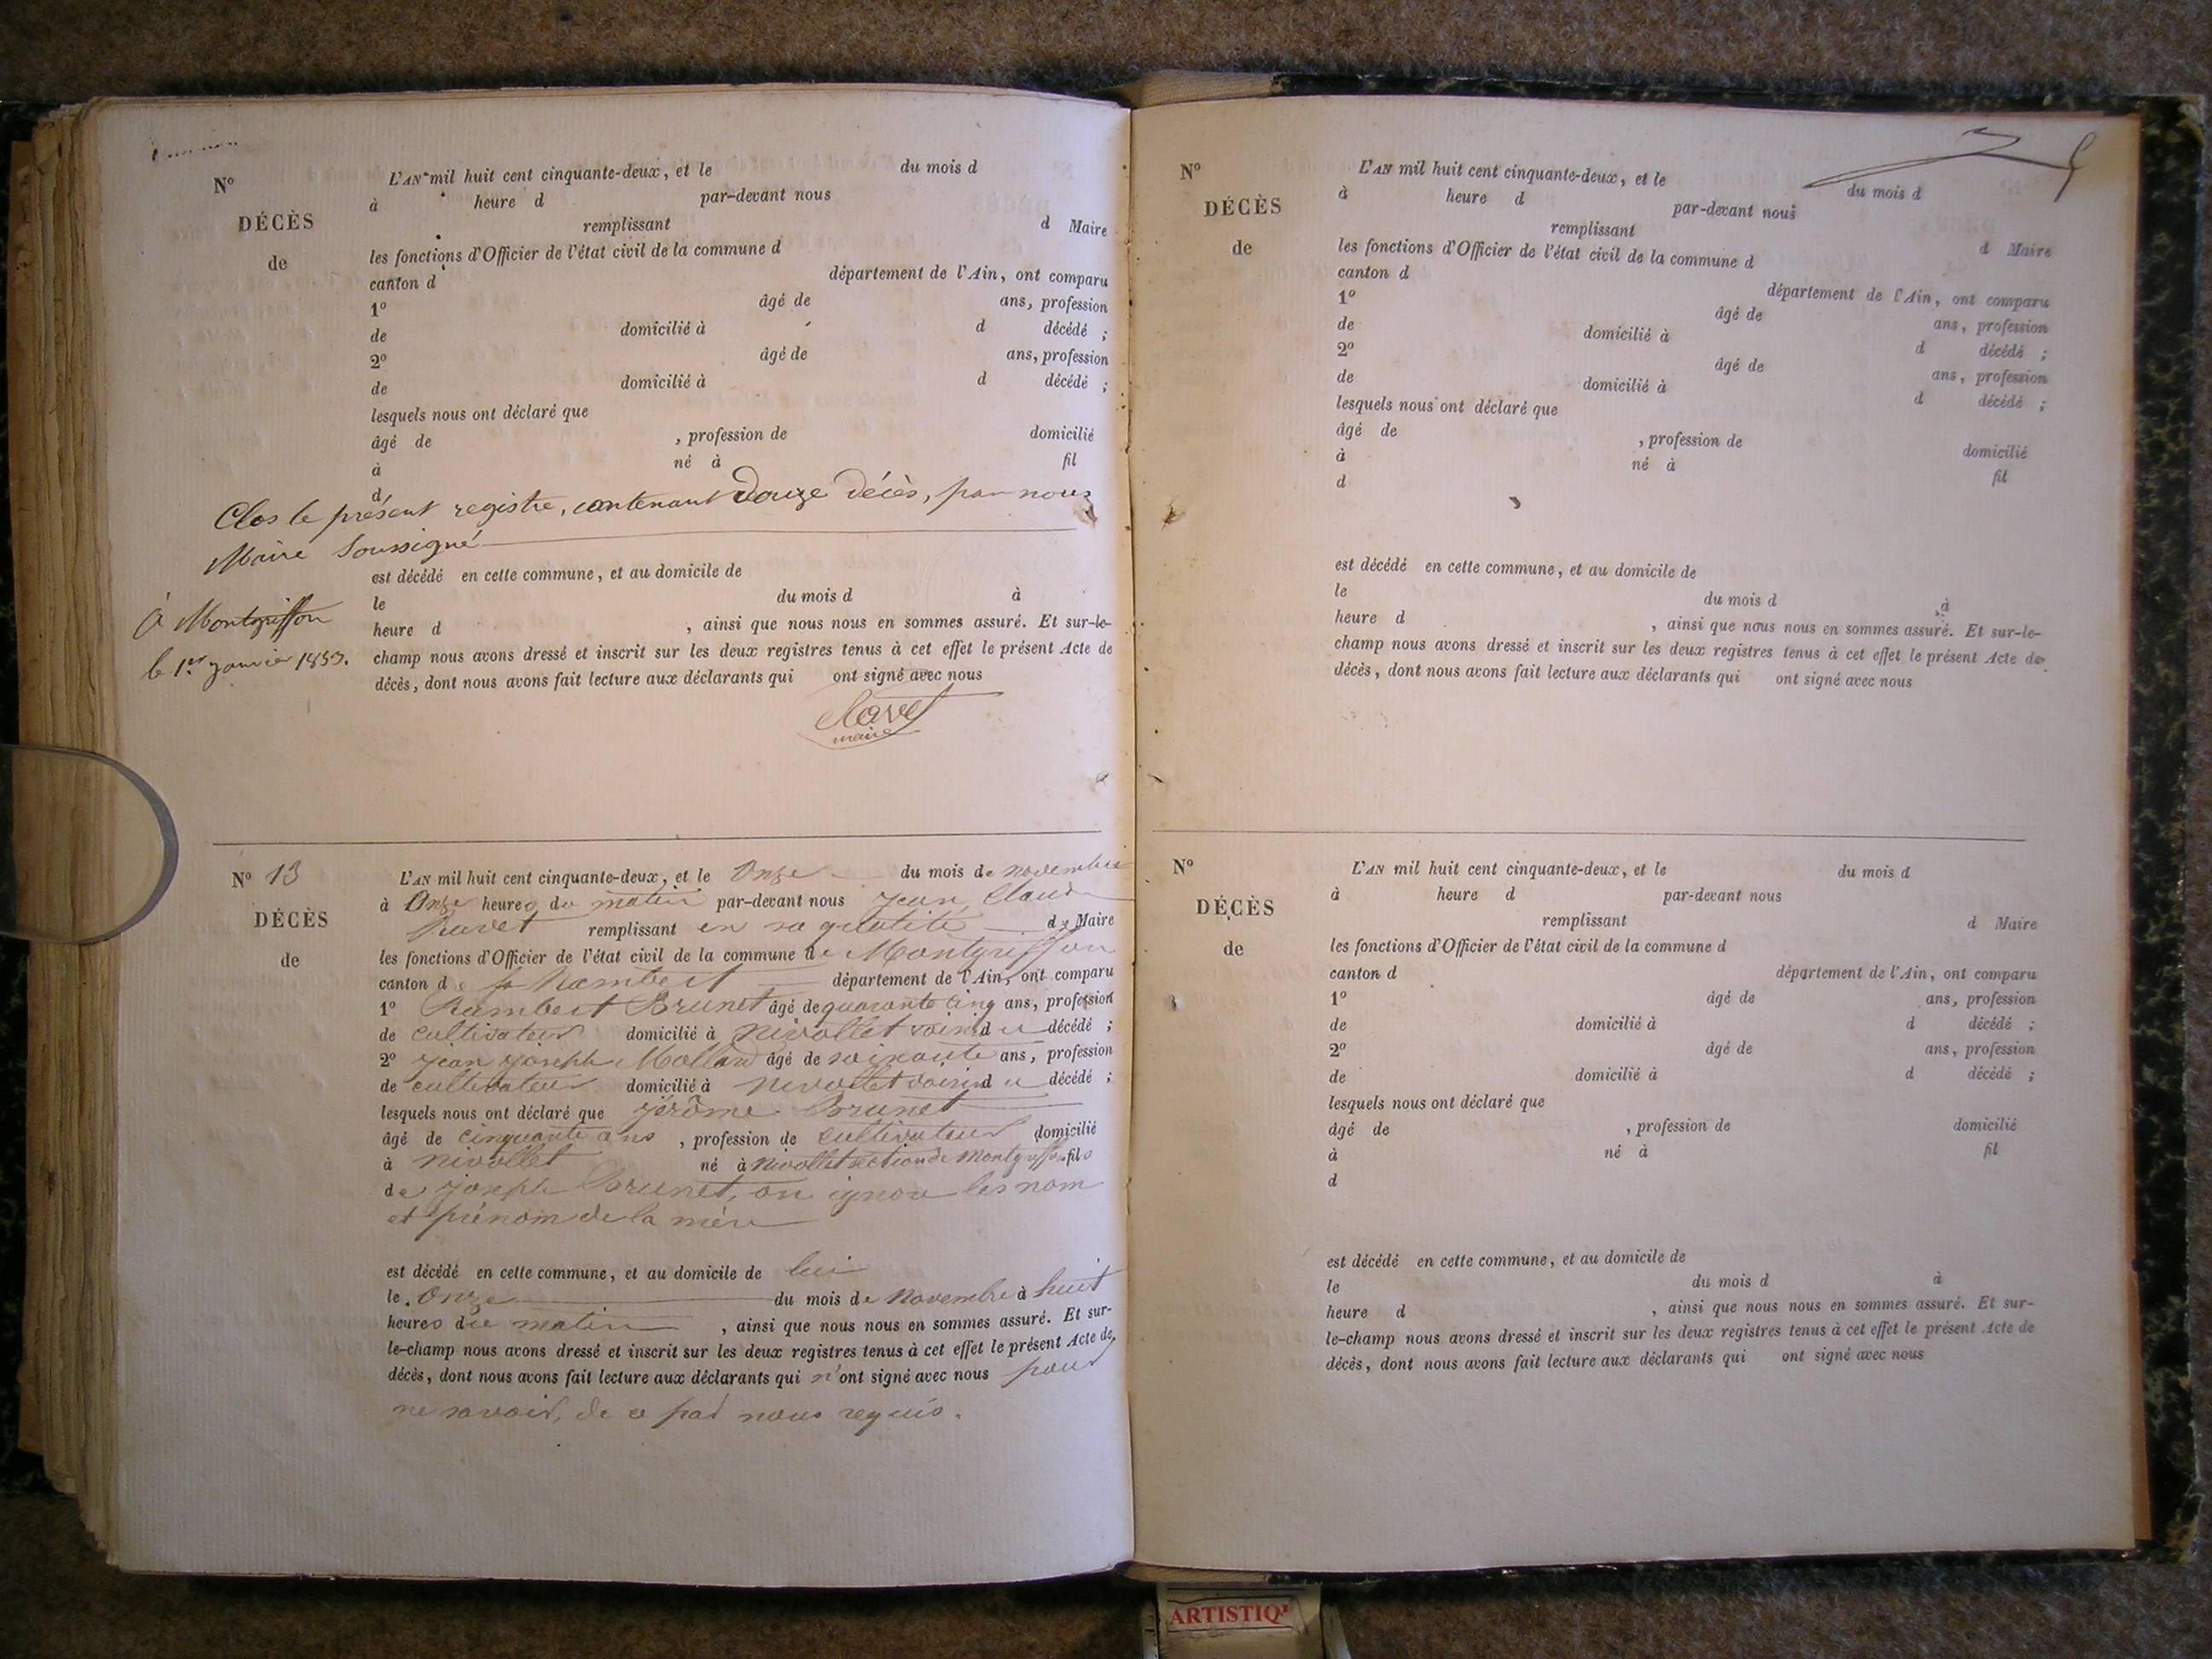 N°
DÉCÈS
de
L'AN mil huit cent cinquante-deux, et le du mois d
à heure d par-devant nous
remplissant d Maire
les fonctions d'Officier de l'état civil de la commune d
canton d département de l'Ain, ont comparu
1° âgé de ans, profession
de domicilié à d décédé ;
2° âgé de ans, profession
de domicilié à d décédé ;
lesquels nous ont déclaré que
âgé de , profession de domicilié
à né à fil
d
Clos le présent registre, contenant Douze Décès, par nous
Maire Soussigné
est décédé en cette commune, et au domicile de
à Montgriffon
le 1er janvier 1853.
le du mois d à
heure d , ainsi que nous nous en sommes assuré. Et sur-le-
champ nous avons dressé et inscrit sur les deux registres tenus à cet effet le présent Acte de
décès, dont nous avons fait lecture aux déclarants qui ont signé avec nous
maire
N° 13
DÉCÈS
de
L'AN mil huit cent cinquante-deux, et le Onze du mois de novembre
à Onze heures du matin par-devant nous Jean Claude
remplissant en sa qualité de Maire
les fonctions d'Officier de l'état civil de la commune de Montgriffon
canton de St Rambert département de l'Ain, ont comparu
1° Rambert Brunet âgé de quarante cinq ans, profession
de cultivateur domicilié à Nivollet voisin du décédé ;
2° Jean Joseph Molland âgé de soixante ans, profession
de cultivateur domicilié à Nivollet voisin du décédé ;
lesquels nous ont déclaré que Jérôme Brunet
âgé de cinquante ans , profession de cultivateur domicilié
à Nivollet né à Nivollet section de Montgriffon fils
de Joseph Brunet, on ignore les nom
et prénom de la mère
est décédé en cette commune, et au domicile de lui
le Onze du mois de Novembre à huit
heures du matin , ainsi que nous nous en sommes assuré. Et sur-
le-champ nous avons dressé et inscrit sur les deux registres tenus à cet effet le présent Acte de
décès, dont nous avons fait lecture aux déclarants qui n'ont signé avec nous pour
ne savoir, de ce par nous requis.
N°
DÉCÈS
de
L'AN mil huit cent cinquante-deux, et le du mois d
à heure d par-devant nous
remplissant d Maire
les fonctions d'Officier de l'état civil de la commune d
canton d département de l'Ain, ont comparu
1° âgé de ans, profession
de domicilié à d décédé ;
2° âgé de ans, profession
de domicilié à d décédé ;
lesquels nous ont déclaré que
âgé de , profession de domicilié
à né à fil
d
est décédé en cette commune, et au domicile de
le du mois d à
heure d , ainsi que nous nous en sommes assuré. Et sur-le-
champ nous avons dressé et inscrit sur les deux registres tenus à cet effet le présent Acte de
décès, dont nous avons fait lecture aux déclarants qui ont signé avec nous
N°
DÉCÈS
de
L'AN mil huit cent cinquante-deux, et le du mois d
à heure d par-devant nous
remplissant d Maire
les fonctions d'Officier de l'état civil de la commune d
canton d département de l'Ain, ont comparu
1° âgé de ans, profession
de domicilié à d décédé ;
2° âgé de ans, profession
de domicilié à d décédé ;
lesquels nous ont déclaré que
âgé de , profession de domicilié
à né à fil
d
est décédé en cette commune, et au domicile de
le du mois d à
heure d , ainsi que nous nous en sommes assuré. Et sur-
le-champ nous avons dressé et inscrit sur les deux registres tenus à cet effet le présent Acte de
décès, dont nous avons fait lecture aux déclarants qui ont signé avec nous
ARTISTIQ